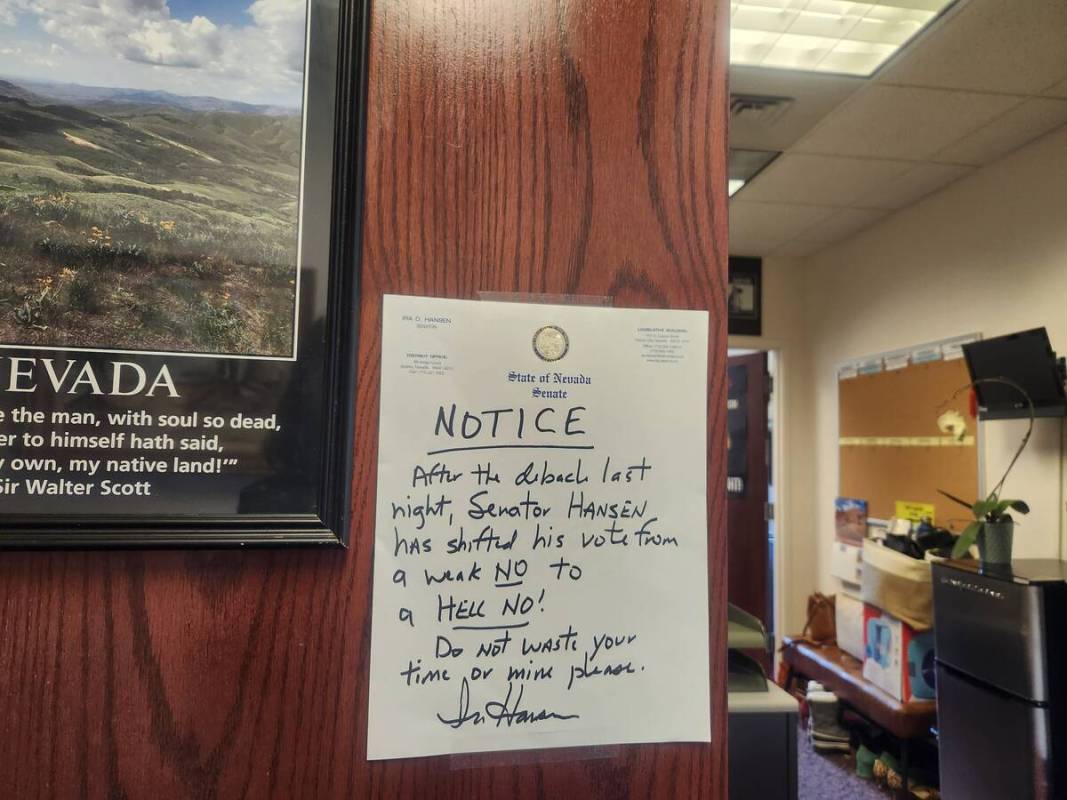 NEVADA
e the man, with soul so dead,
er to himself hath said,
y own, my native land!'"
Sir Walter Scott
IRA D. HANSEN
SENATOR
DISTRICT OFFICE:
LEGISLATIVE BUILDING:
State of Nevada
Senate
NOTICE
After the debach last
night, Senator HANSEN
has shifted his vote from
a weak NO to
a HELL NO!
Do NOT waste your
time or mine please.
Ira Hansen